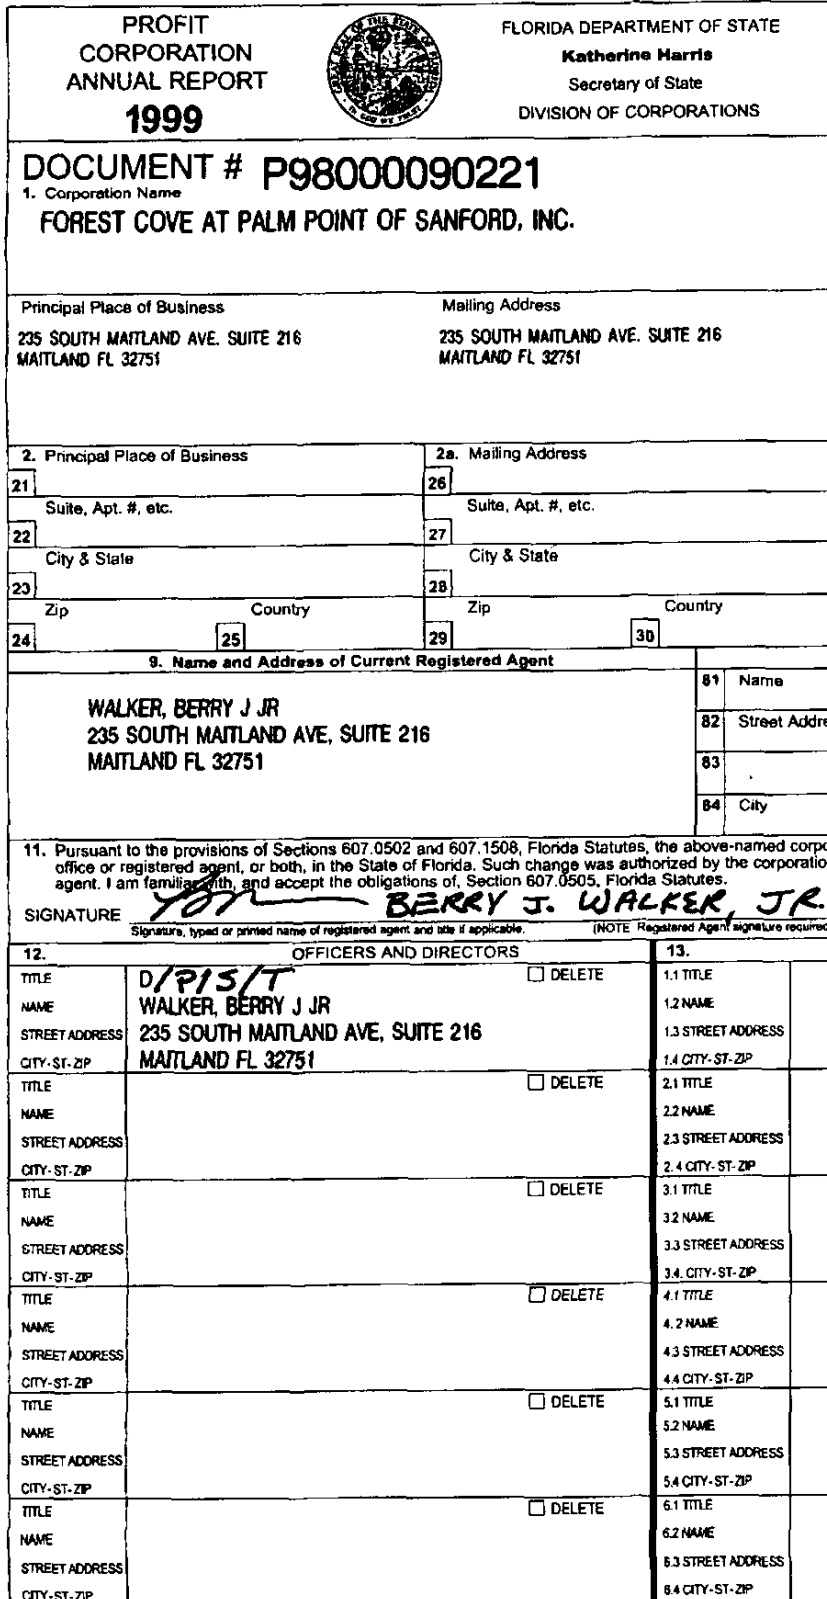 PROFIT
CORPORATION
ANNUAL REPORT
1999
FLORIDA DEPARTMENT OF STATE
Katherine Harris
Secretary of State
DIVISION OF CORPORATIONS
DOCUMENT # P98000090221
1. Corporation Name
FOREST COVE AT PALM POINT OF SANFORD, INC.
Principal Place of Business
235 SOUTH MAITLAND AVE. SUITE 216
MAITLAND FL 32751
Mailing Address
235 SOUTH MAITLAND AVE. SUITE 216
MAITLAND FL 32751
2. Principal Place of Business
21
Suite, Apt. #, etc.
22
City & State
23
Zip Country
24 25
2a. Mailing Address
26
Suite, Apt. #, etc.
27
City & State
28
Zip Country
29 30
9. Name and Address of Current Registered Agent
WALKER, BERRY J JR
235 SOUTH MAITLAND AVE, SUITE 216
MAITLAND FL 32751
81 Name
82 Street Addre
83
84 City
11. Pursuant to the provisions of Sections 607.0502 and 607.1508, Florida Statutes, the above-named corpo
office or registered agent, or both, in the State of Florida. Such change was authorized by the corporatio
agent. I am familiar with, and accept the obligations of, Section 607.0505, Florida Statutes.
SIGNATURE BERRY J. WALKER, JR.
Signature, typed or printed name of registered agent and title if applicable. (NOTE Registered Agent signature required
12. OFFICERS AND DIRECTORS 13.
TITLE D/P/S/T DELETE
NAME WALKER, BERRY J JR
STREET ADDRESS 235 SOUTH MAITLAND AVE, SUITE 216
CITY-ST-ZIP MAITLAND FL 32751
1.1 TITLE
1.2 NAME
1.3 STREET ADDRESS
1.4 CITY-ST-ZIP
TITLE DELETE
NAME
STREET ADDRESS
CITY-ST-ZIP
2.1 TITLE
2.2 NAME
2.3 STREET ADDRESS
2.4 CITY-ST-ZIP
TITLE DELETE
NAME
STREET ADDRESS
CITY-ST-ZIP
3.1 TITLE
3.2 NAME
3.3 STREET ADDRESS
3.4. CITY-ST-ZIP
TITLE DELETE
NAME
STREET ADDRESS
CITY-ST-ZIP
4.1 TITLE
4.2 NAME
4.3 STREET ADDRESS
4.4 CITY-ST-ZIP
TITLE DELETE
NAME
STREET ADDRESS
CITY-ST-ZIP
5.1 TITLE
5.2 NAME
5.3 STREET ADDRESS
5.4 CITY-ST-ZIP
TITLE DELETE
NAME
STREET ADDRESS
CITY-ST-ZIP
6.1 TITLE
6.2 NAME
6.3 STREET ADDRESS
6.4 CITY-ST-ZIP